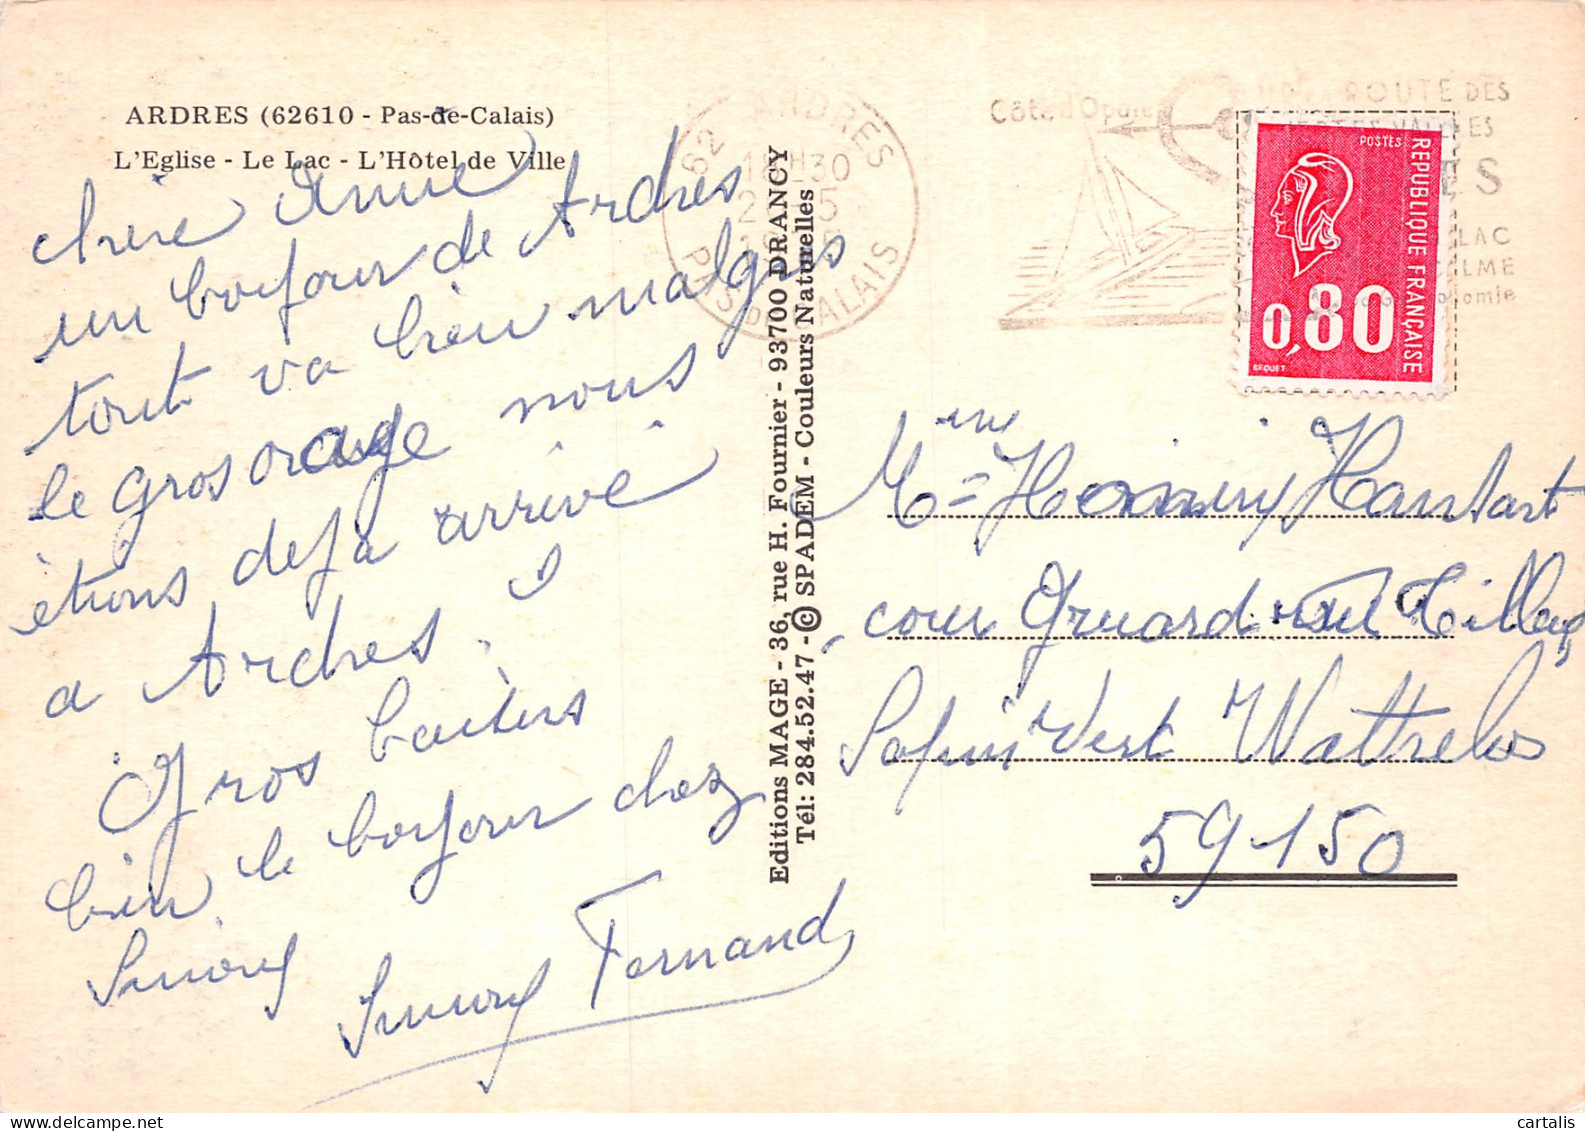 ARDRES (62610 - Pas-de-Calais)
L'Eglise - Le Lac - L'Hôtel de Ville
chère Anne
un bonjour de Ardres
tout va bien malgres
le gros orage nous
ètions deja arrivé
a Ardres.
Gros baisers
bien le bonjour chez
Fernand
Editions MAGE - 36, rue H. Fournier - 93700 DRANCY
Tél: 284.52.47 - © SPADEM - Couleurs Naturelles
62 ARDRES
18H30
PAS DE CALAIS
Côte d'Opale
ROUTE DES
VALLEES
LAC
CALME
POSTES
REPUBLIQUE FRANÇAISE
0,80
BEQUET
Mme Hantart
cour Gruard rue Tilleul
Sapin Vert Wattrelos
59150
cartalis